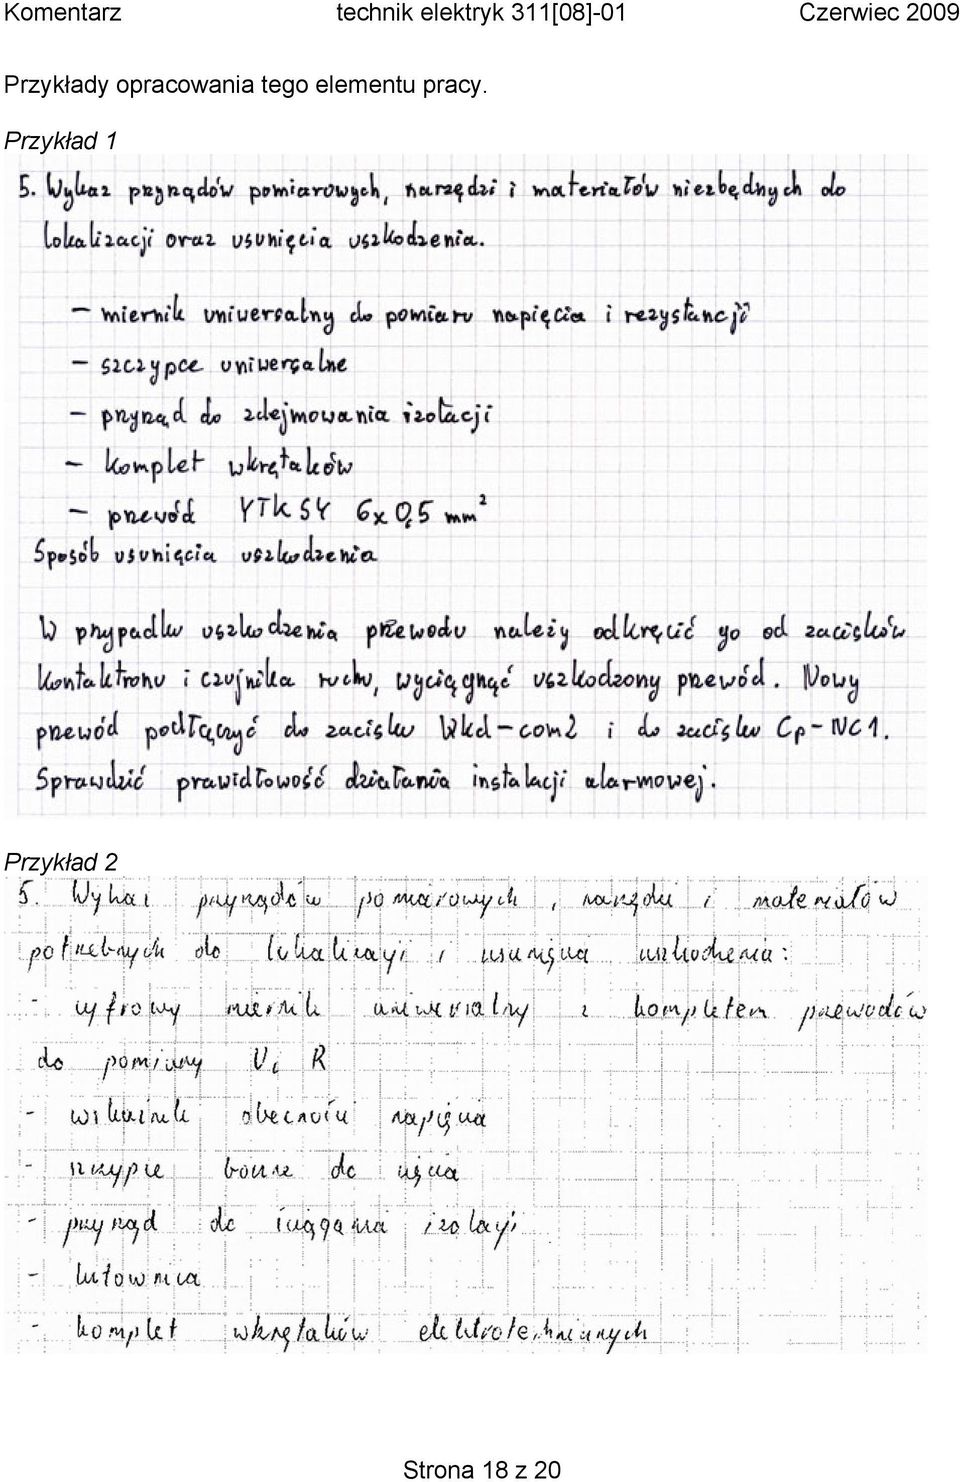 Komentarz technik elektryk 311[08]-01 Czerwiec 2009
Przykłady opracowania tego elementu pracy.
Przykład 1
5. Wykaz przyrządów pomiarowych, narzędzi i materiałów niezbędnych do
lokalizacji oraz usunięcia uszkodzenia.
- miernik uniwersalny do pomiaru napięcia i rezystancji
- szczypce uniwersalne
- przyrząd do zdejmowania izolacji
- komplet wkrętaków
- przewód YTKSY 6x0,5 mm²
Sposób usunięcia uszkodzenia
W przypadku uszkodzenia przewodu należy odkręcić go od zacisków
kontaktronu i czujnika ruchu, wyciągnąć uszkodzony przewód. Nowy
przewód podłączyć do zacisku Wkd-com2 i do zacisku Cp-NC1.
Sprawdzić prawidłowość działania instalacji alarmowej.
Przykład 2
5. Wykaz przyrządów pomiarowych, narzędzi i materiałów
potrzebnych do lokalizacji i usunięcia uszkodzenia:
- cyfrowy miernik uniwersalny z kompletem przewodów
do pomiary U i R
- wskaźnik obecności napięcia
- szczypce boczne do cięcia
- przyrząd do ściągania izolacji
- lutownica
- komplet wkrętaków elektrotechnicznych
Strona 18 z 20